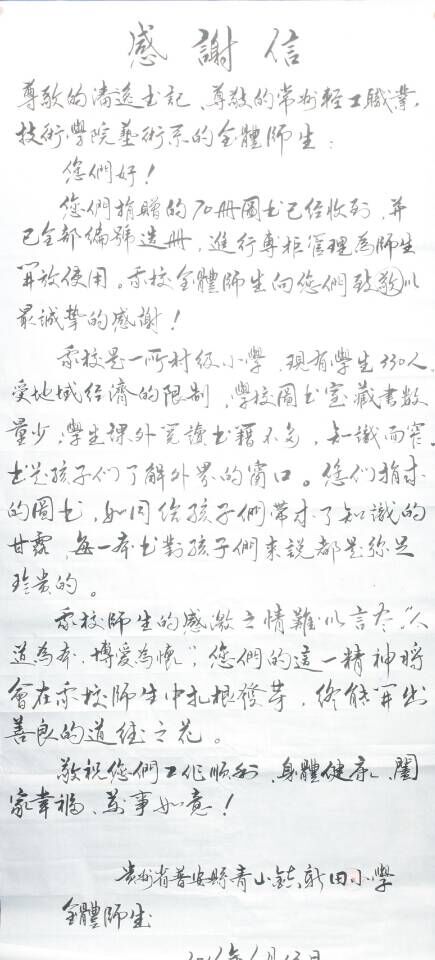 感謝信
尊敬的潘逸书記、尊敬的常州輕工職業
技術學院藝術系的全體師生：
您們好！
您們捐贈的70册圖书已经收到，并
已全部编號造册，進行專柜管理為師生
開放使用。我校全體師生向您們致以
最誠摯的感謝！
我校是一所村级小學，現有學生330人，
受地域经濟的限制，學校圖书室藏書數
量少，學生課外閱讀书籍不多，知識面窄。
书是孩子们了解外界的窗口。您们捐來
的圖书，如同给孩子們带來了知識的
甘露，每一本书對孩子們來説都是弥足
珍贵的。
我校師生的感激之情難以言尽，“人
道為本，博爱為懷”，您們的這一精神將
會在我校師生中扎根發芽，终能開出
善良的道德之花。
敬祝您們工作順利、身體健康、闔
家幸福、萬事如意！
贵州省普安縣青山鎮新田小學
全體師生